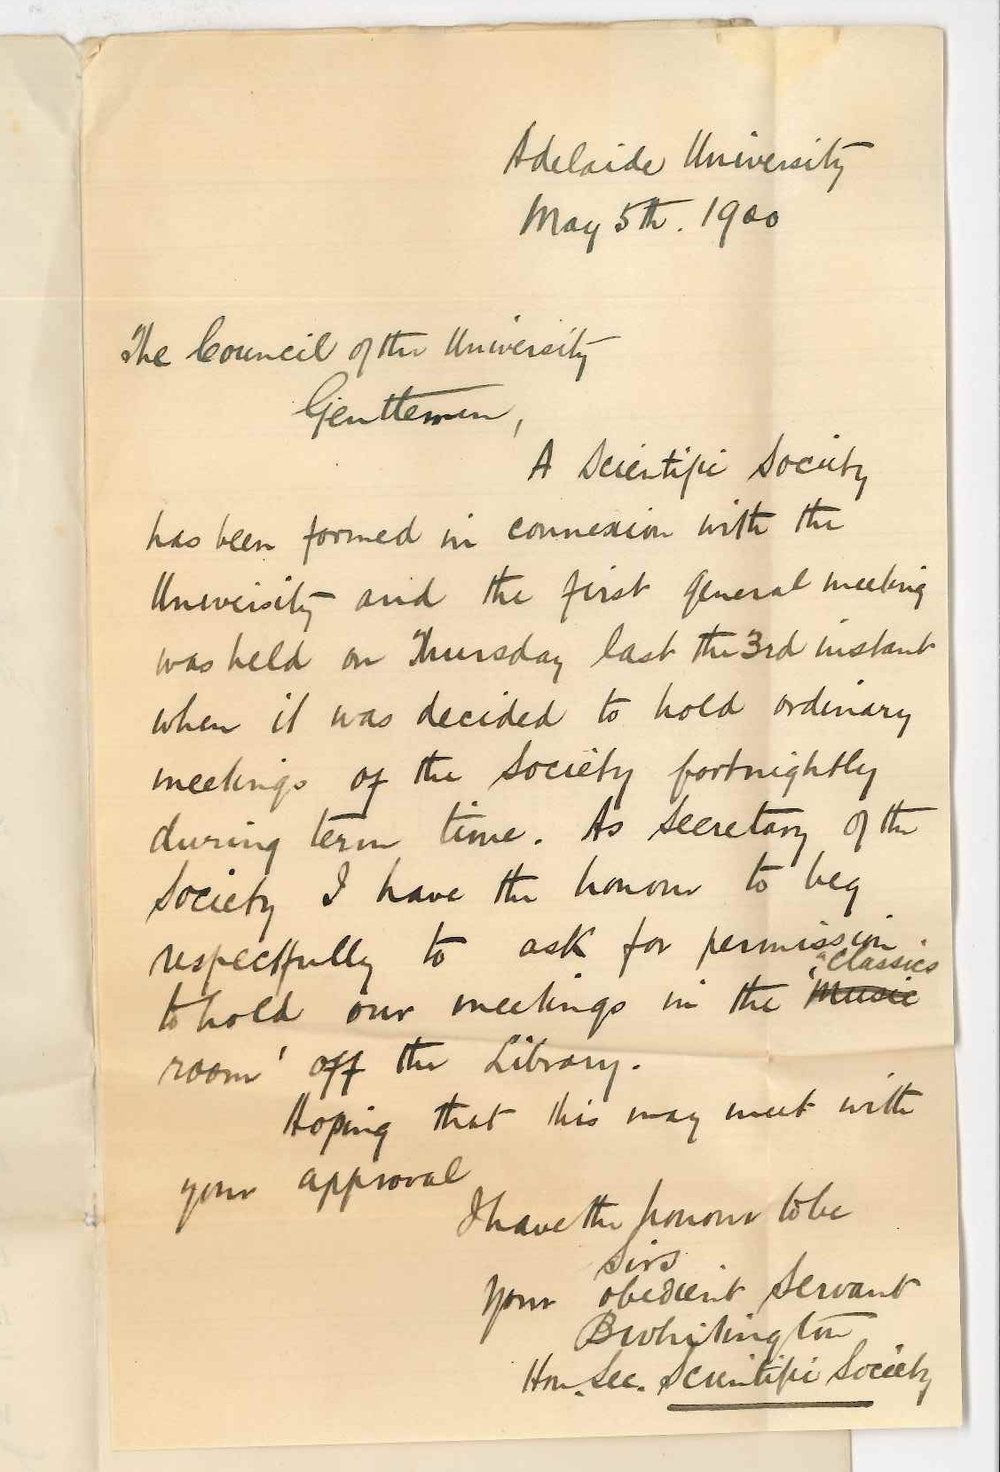 Adelaide University
May 5th. 1900
The Council of the University
Gentlemen,
A Scientific Society
has been formed in connexion with the
University and the first general meeting
was held on Thursday last the 3rd instant
when it was decided to hold ordinary
meetings of the Society fortnightly
during term time. As Secretary of the
Society I have the honour to beg
respectfully to ask for permission
to hold our meetings in the 'Music
"Classics
room' off the Library.
Hoping that this may meet with
your approval
I have the honour to be
Sirs
Your obedient Servant
B Whitington
Hon. Sec. Scientific Society